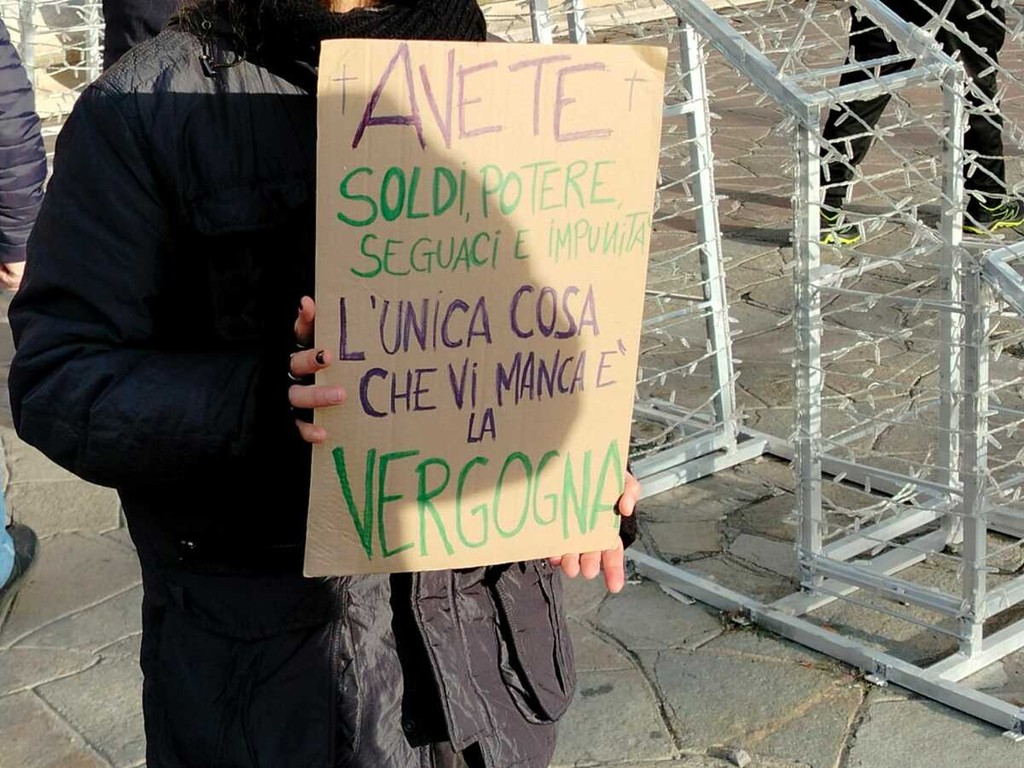 † AVETE †
SOLDI, POTERE,
SEGUACI E IMPUNITÀ
L'UNICA COSA
CHE VI MANCA E'
LA
VERGOGNA